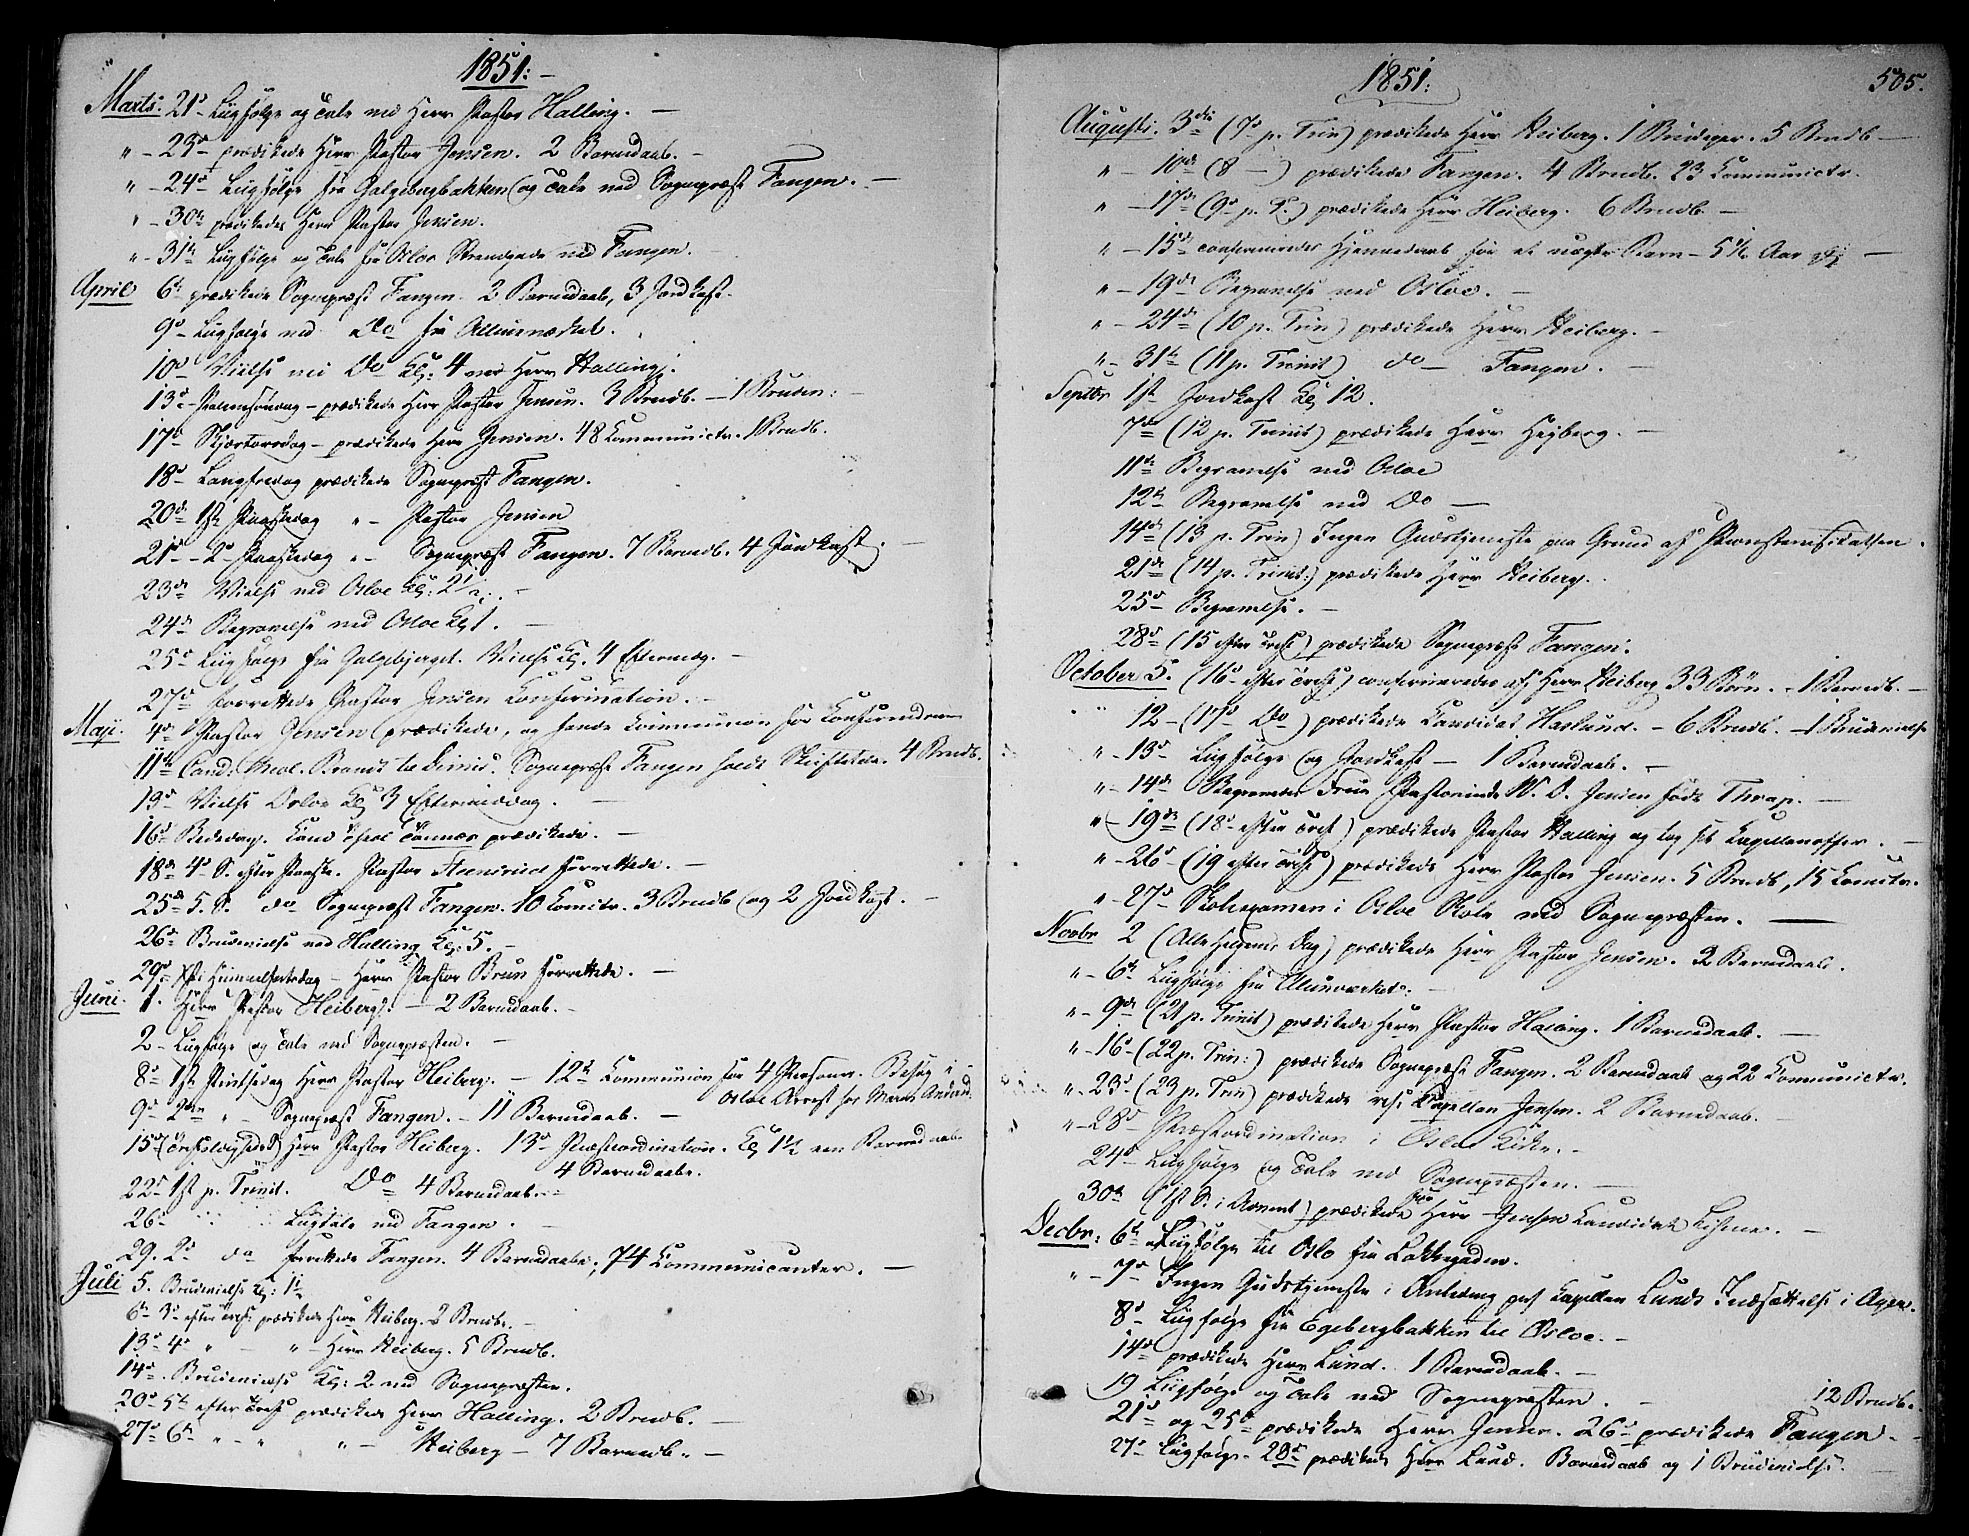 1851:
Marts. 21de Liigfølge og Tale ved Herr Pastor Halling.
" - 23de prædikede Herr Pastor Jensen. 2 Barnedaab.
" - 24de Liigfølge fra Galgebergbakken (og Tale ved Sognepræst Fangen.
" - 30te prædikede Herr Pastor Jensen.
" - 31te Liigfølge og Tale fra Osloe Strandgade ved Fangen.
April 6te prædikede Sognepræst Fangen. 2 Barnedaab, 3 Jordkast.
9de Liigfølge ved Do fra Alluunværket.
10de Vielse ved Do Kl: 4 ved Herr Halling.
13de Palmesøndag - prædikede Herr Pastor Jensen. 3 Brndb. - 1 Bruden:
17de Skjærtorsdag - prædikede Herr Jensen. 48 Communictr. 1 Brndb.
18de Langfredag prædikede Sognepræst Fangen.
20de 1ste Paaskedag " - Pastor Jensen
21de - 2den Paaskedag " - Sognepræst Fangen. 7 Barnedb. 4 Jordkast.
23de Vielse ved Osloe Kl: 2½.
24de Begravelse ved Osloe Kl 1.
25de Liigfølge fra Galgebjerget. Vielse Kl. 4 Eftermdg.
27de forrettede Pastor Jensen Confirmation.
Maji. 4de Pastor Jensen prædikede, og havde Communion for Confirmderne
11te Cand: theol. Brandt til Dimis. Sognepræst Fangen holdt Skriftetale. 4 Brndb.
13de Vielse Osloe Kl 3 Eftermiddag.
16de Bededag. Cand theol Tønnæs prædikede.
18de 4de S. efter Paaske. Pastor Steensrud forrettede.
25de 5. S. do Sognepræst Fangen. 10 Comctr. 3 Brndb (og 2 Jordkast.
26de Brudevielse ved Halling Kl: 5.
29de Xsti Himmelfartsdag - Herr Pastor Brun forrettede.
Juni. 1. Herr Pastor Heiberg: - 2 Barnedaab.
2 - Liigfølge og Tale ved Sognepræsten.
8de 1ste Pintsedag Herr Pastor Heiberg. - 12te Communion for 4 Personer. Besøg i
Osloe Arrest
9de 2den " - Sognepræst Fangen. - 11 Barnedaab.
15de (Trefoldighed) Herr Pastor Heiberg. 13de Præsteordination. Kl 1½ een Barnedaab.
4 Barnedaab.
22de 1st p. Trinit. Do 4 Barnedaab.
26de Liigtale ved Fangen.
29. 2de do forrettede Fangen. 4 Barnedaab; 74 Communicanter.
Juli 5. Brudevielse Kl: 1½
6te 3de efter Tref: prædikede Herr Heiberg. 2 Brndb.
13de 4de " - " - Herr Heiberg. 5 Brndb.
14de. Brudevielse Kl: 2 ved Sognepræsten.
20de 5te efter Tref prædikede Herr Halling. 2 Brndb.
27de 6te " - " " - Heiberg - 7 Barnedb.
1851: 505.
Augusti. 3die (7de p. Trin) prædikede Herr Heiberg. 1 Brudepar. 5 Brndb
" - 10de (8 - ) prædikede Fangen. 4 Brndb. 23 Communictr.
" - 17de (9de p. T.) prædikede Herr Heiberg. 6 Brndb.
" - 15de confirmeredes Hjemmedaab for et uægte Barn - 5½ Aar
" - 19de Begravelse ved Osloe.
" - 24de (10 p. Trin) prædikede Herr Heiberg.
" - 31te (11 p. Trinit) do - Fangen.
Septbr 1st Jordkast Kl 12.
7de (12 p. Trinit) prædikede Herr Heyberg.
11te Begravelse ved Osloe
12te Begravelse ved Do
14de (13 p. Trin) Ingen Gudstjeneste paa Grund af Provstevisitatsen.
21de (14 p. Trinit:) prædikede Herr Heiberg.
25de Begravelse.
28de (15 efter Tref) prædikede Sognepræst Fangen.
October 5. (16de efter Tref) confirmeredes af Herr Heiberg 33 Børn. - 1 Barnedb.
" 12 - (17de Do) prædikede Candidat Haslund. - 6 Brndb. - 1 Brudevielse
" - 13de Liigfølge (og Jordkast - 1 Barnedaab.
" - 14de Begravedes Frue Pastorinde W. D. Jensen født Thrap.
" - 19de (18de efter Tref) prædikede Pastor Halling og tog sit Capellanoffer.
" - 26de (19 efter Tref) prædikede Herr Pastor Jensen. 5 Brndb, 15 Comctr.
" - 27de Skoleexamen i Osloe Skole ved Sognepræsten.
Novbr 2 (Alle Helgens Dag) prædikede Herr Pastor Jensen. 2 Barnedaab.
" - 6te Liigfølge fra Alunværket.
" - 9de (21 p. Trinit) prædikede Herr Pastor Halling. 1 Barnedaab.
" - 16de (22 p. Trin:) prædikede Sognepræst Fangen. 2 Barnedaab og 22 Communictr.
" - 23de (23 p. Trin) prædikede res: Capellan Jensen. 2 Barnedaab.
" - 28de Præsteordination i Osloe Kirke.
24de Liigfølge og Tale ved Sognepræsten.
30te (1st S. i Advent) prædikede for Herr Jensen Candidat
Decbr: 6te Liigfølge til Oslo fra Lakkegaden.
" - 7de Ingen Gudstjeneste i Anledning af Capellan Lunds Indsættelse i Ager.
8de Liigfølge fra Egebergbakken til Osloe.
14de prædikede Herr Lund. 1 Barnedaab.
19 Liigfølge og Tale ved Sognepræsten. 12 Brndb.
21de og 25de prædikede Herr Jensen. 26de prædikede Fangen.
27de Liigfølge. 28de prædikede Herr Lund. Barnedaab og 1 Brudevielse.